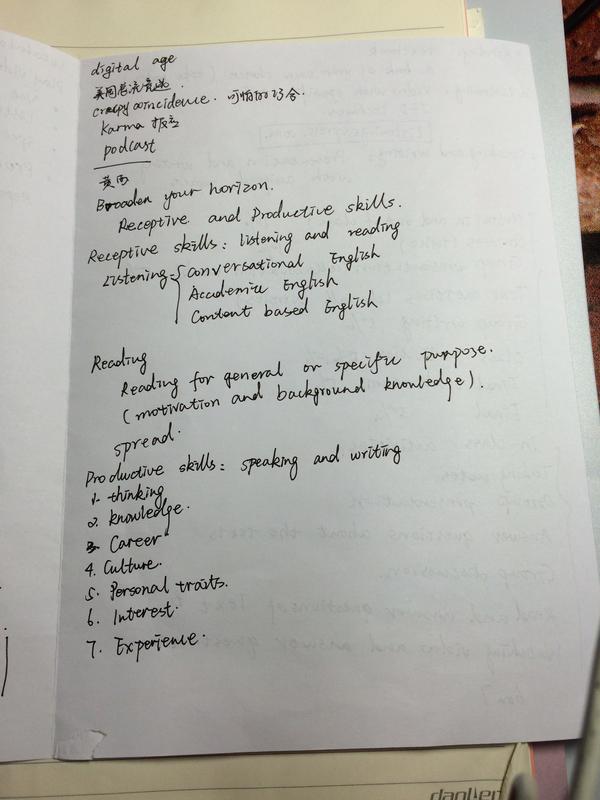 digital age
美国
creepy coincidence. 可怕的巧合.
Karma 报应
podcast
黄西
Broaden your horizon.
Receptive and Productive skills.
Receptive skills: listening and reading
Listening { conversational English
Academic English
Content based English
Reading
Reading for general or specific purpose.
(motivation and background knowledge).
spread.
Productive skills: speaking and writing
1. thinking
2. knowledge.
3. Career
4. Culture.
5. Personal traits.
6. Interest.
7. Experience.